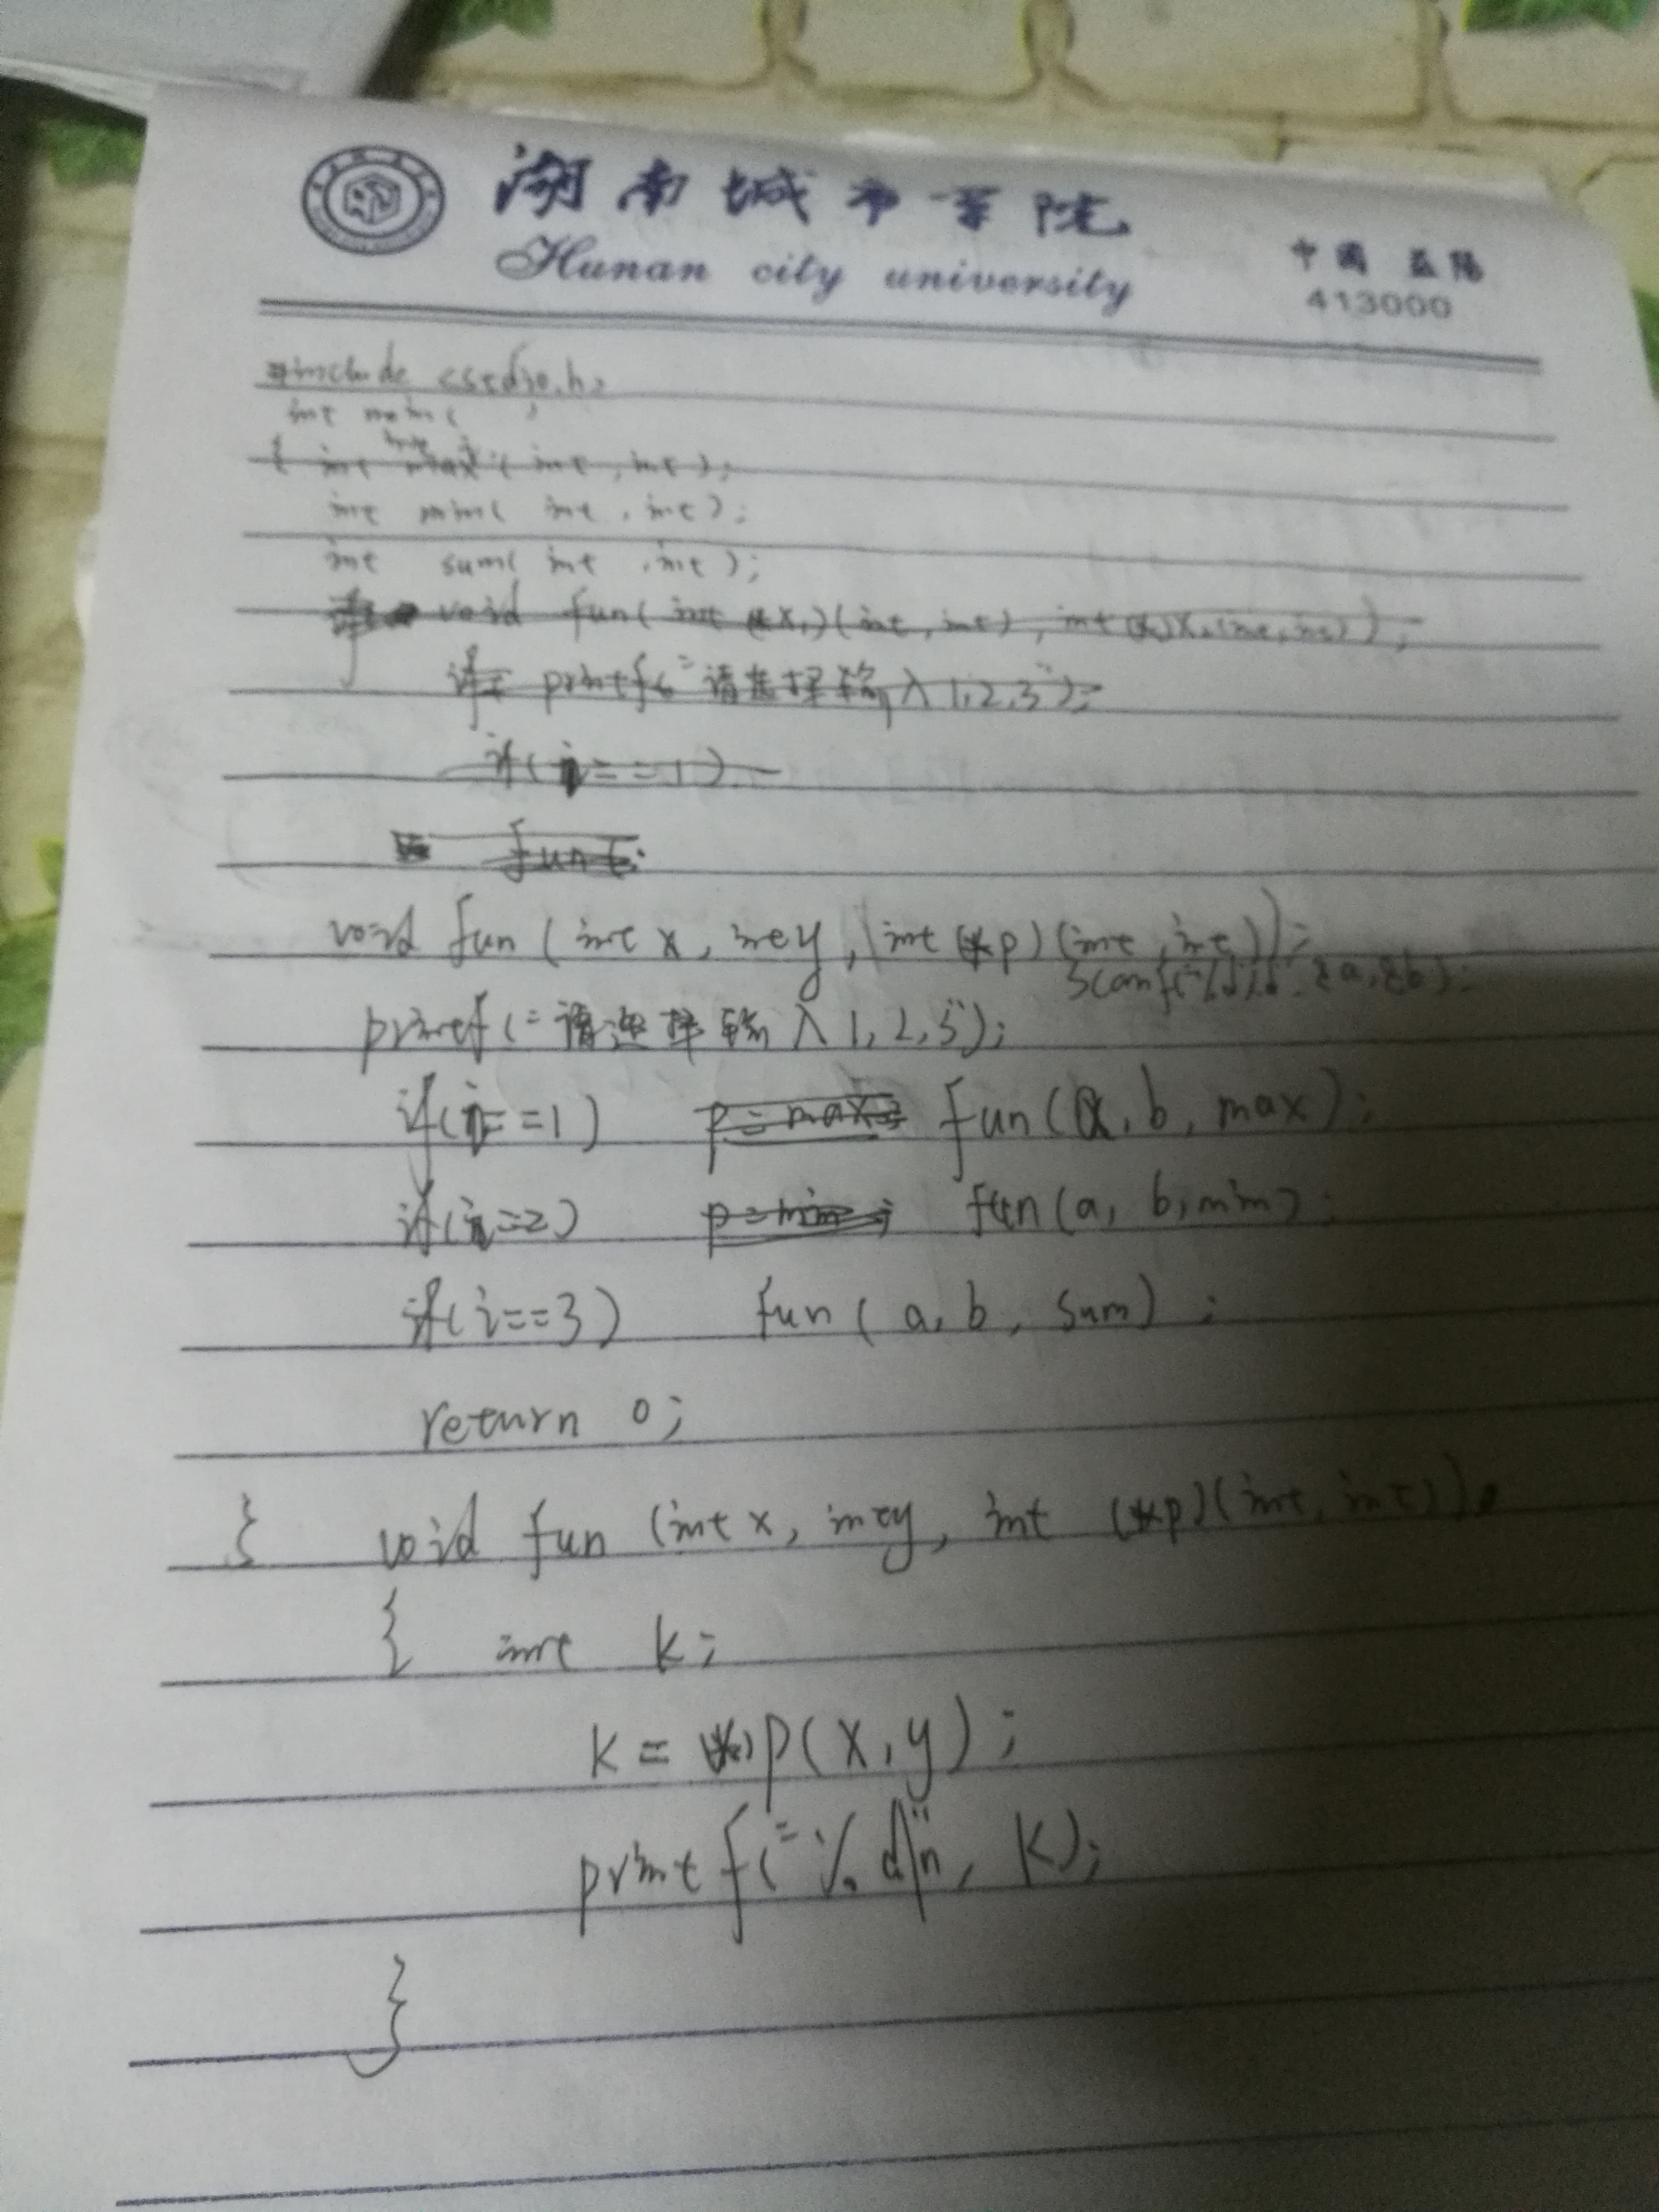 湖南城市学院
Hunan city university
中國 益陽
413000
#include <stdio.h>
int main(
{ int max ( int , int );
int min( int , int );
int sum( int , int );
void fun( int (*x1)(int, int), int (*)x2(int, int));
printf("请选择输入1,2,3");
if(i==1)
fun(
void fun (int x, int y, int (*p)(int, int));
scanf("%d%d", &a, &b);
printf("请选择输入1,2,3");
if(i==1) p=max; fun(a, b, max);
if(i==2) p=min; fun(a, b, min);
if(i==3) fun( a, b, sum);
return 0;
} void fun (int x, int y, int (*p)(int, int))
{ int k;
k = (*)p(x,y);
printf("%d\n", k);
}